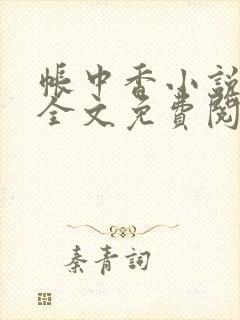 帳中香小說
全文免費閱
秦青詞